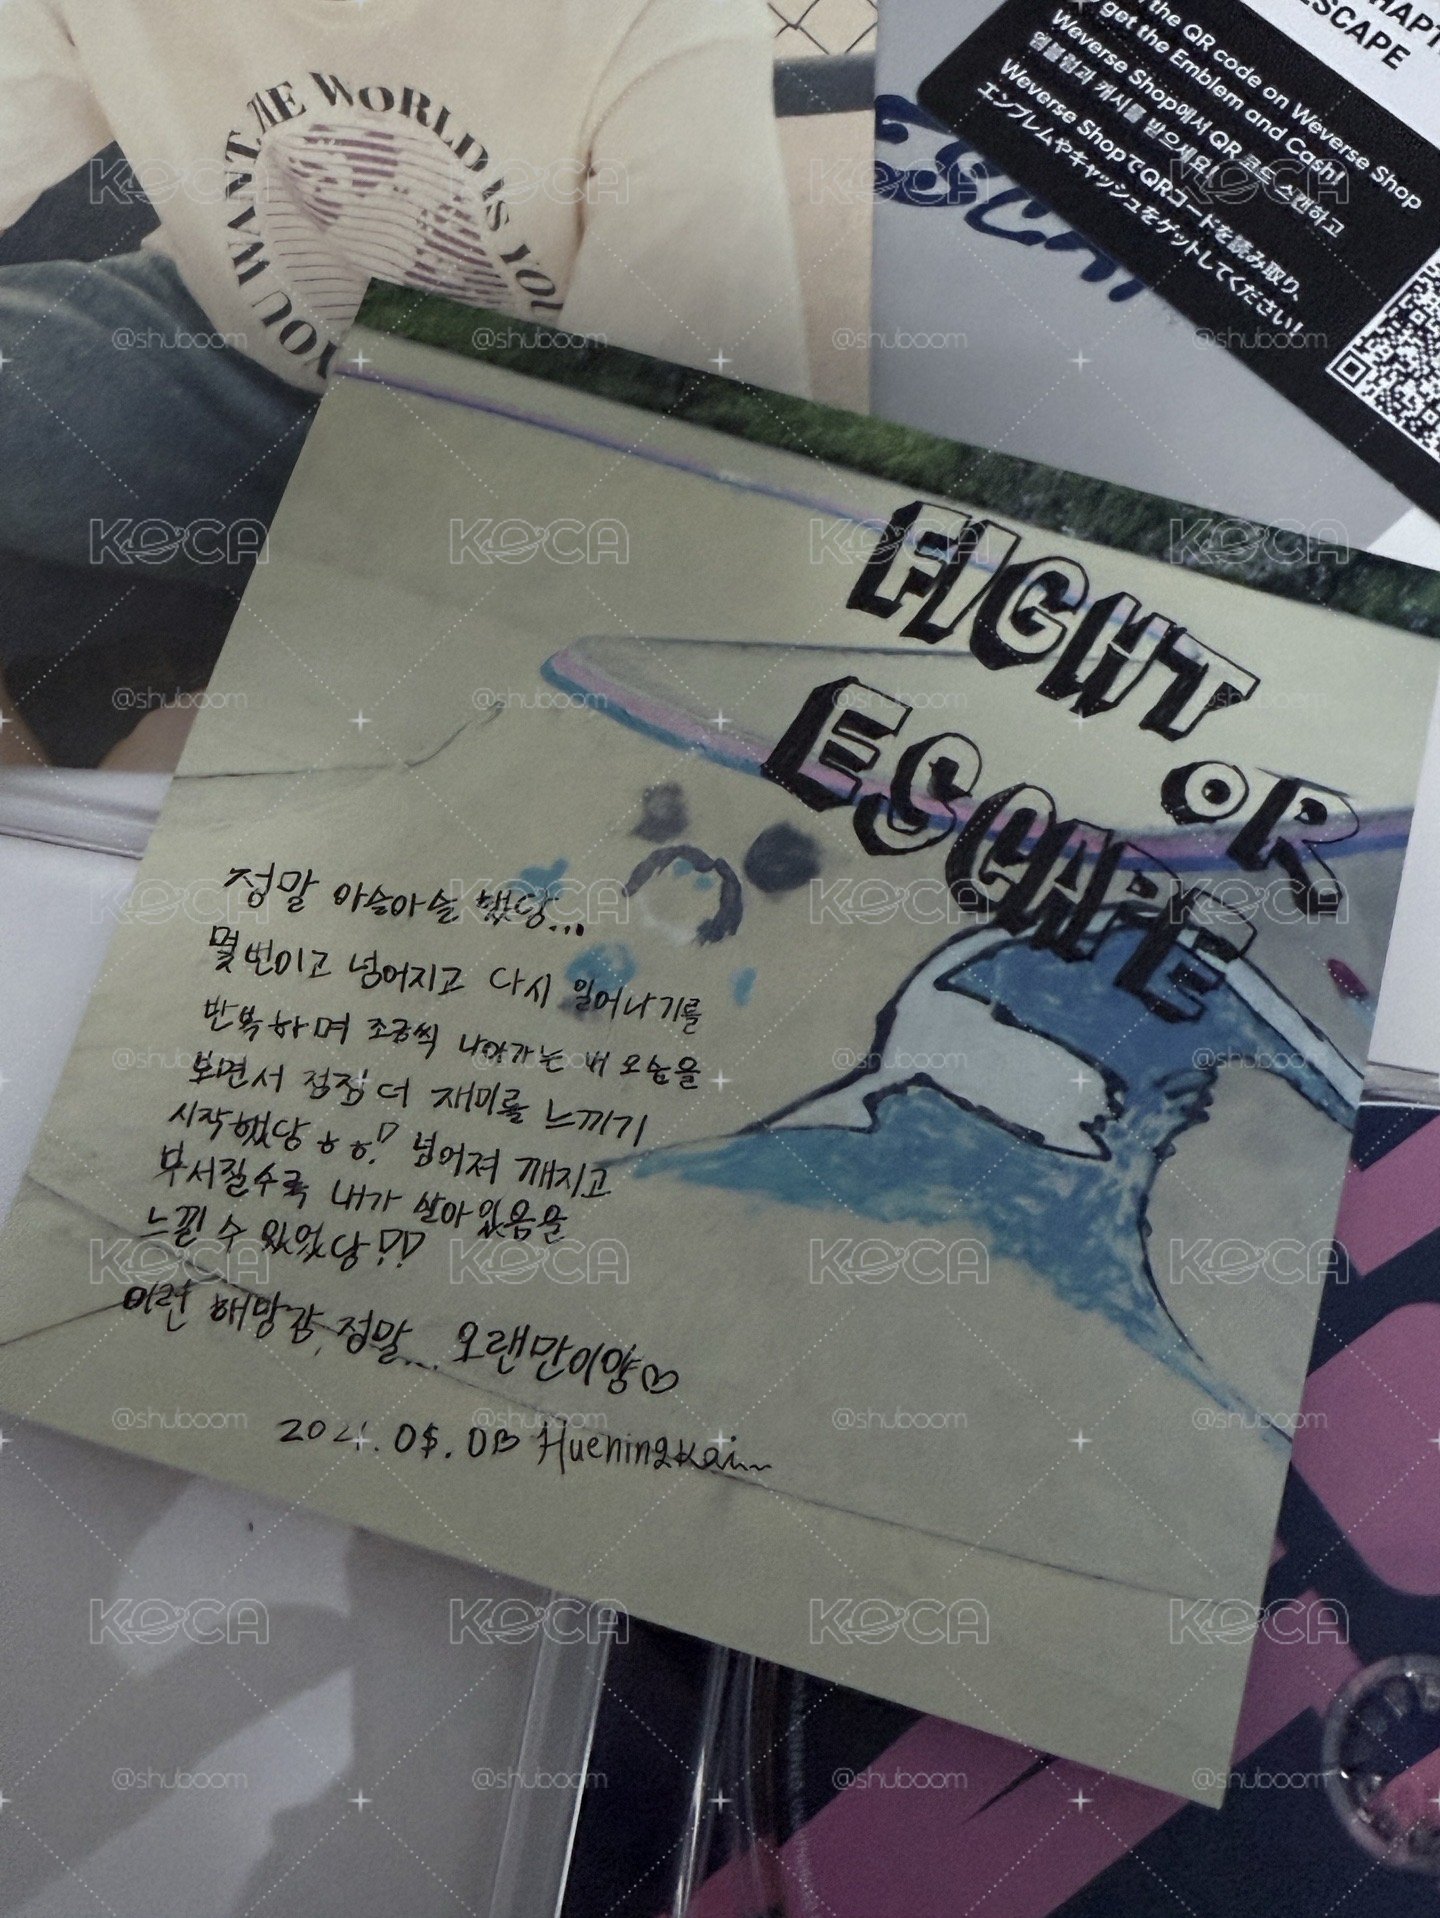 YOU WANT. THE WORLD IS YOU
HAPT
ESCAPE
the QR code on Weverse Shop
get the Emblem and Cash!
Weverse Shop에서 QR 코드 스캔하고
엠블럼과 캐시를 받으세요!
Weverse ShopでQRコードを読み取り、
エンブレムやキャッシュをゲットしてください!
ESCA
FIGHT
OR
ESCAPE
정말 아슬아슬 했당...
몇번이고 넘어지고 다시 일어나기를
반복하며 조금씩 나아가는 내 모습을
보면서 점점 더 재미를 느끼기
시작했당ㅎㅎ! 넘어져 깨지고
부서질수록 내가 살아있음을
느낄 수 있었당!!
이런 해방감, 정말... 오랜만이양♡
2021.05.03 Hueningkai
KOCA
@shuboom